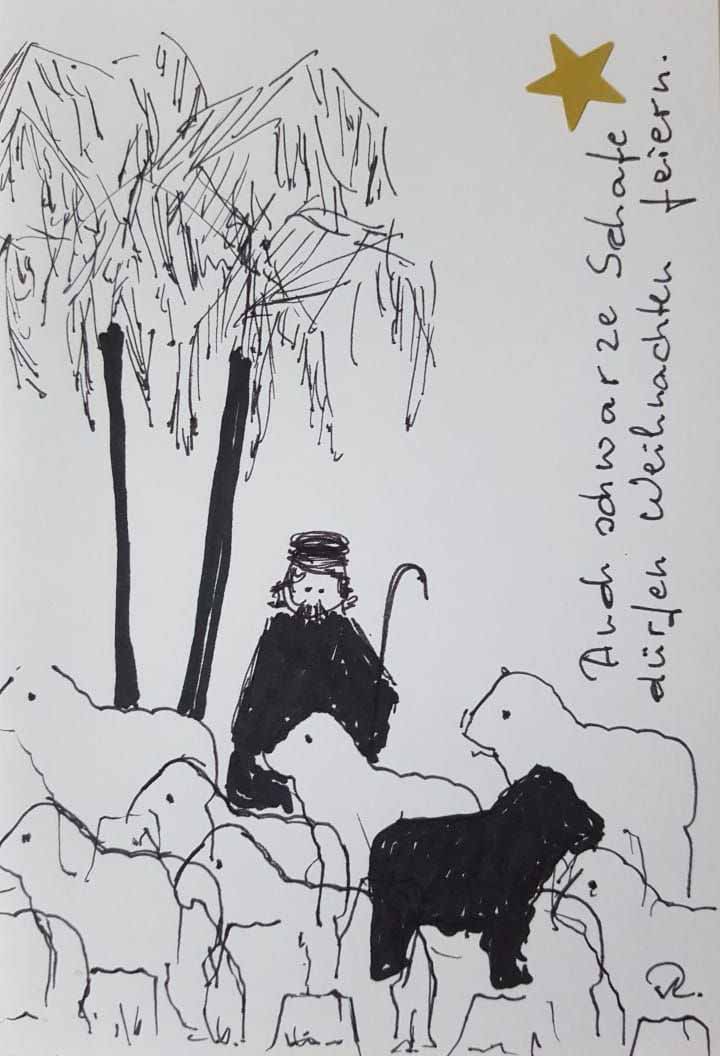 Auch schwarze Schafe
dürfen Weihnachten feiern.